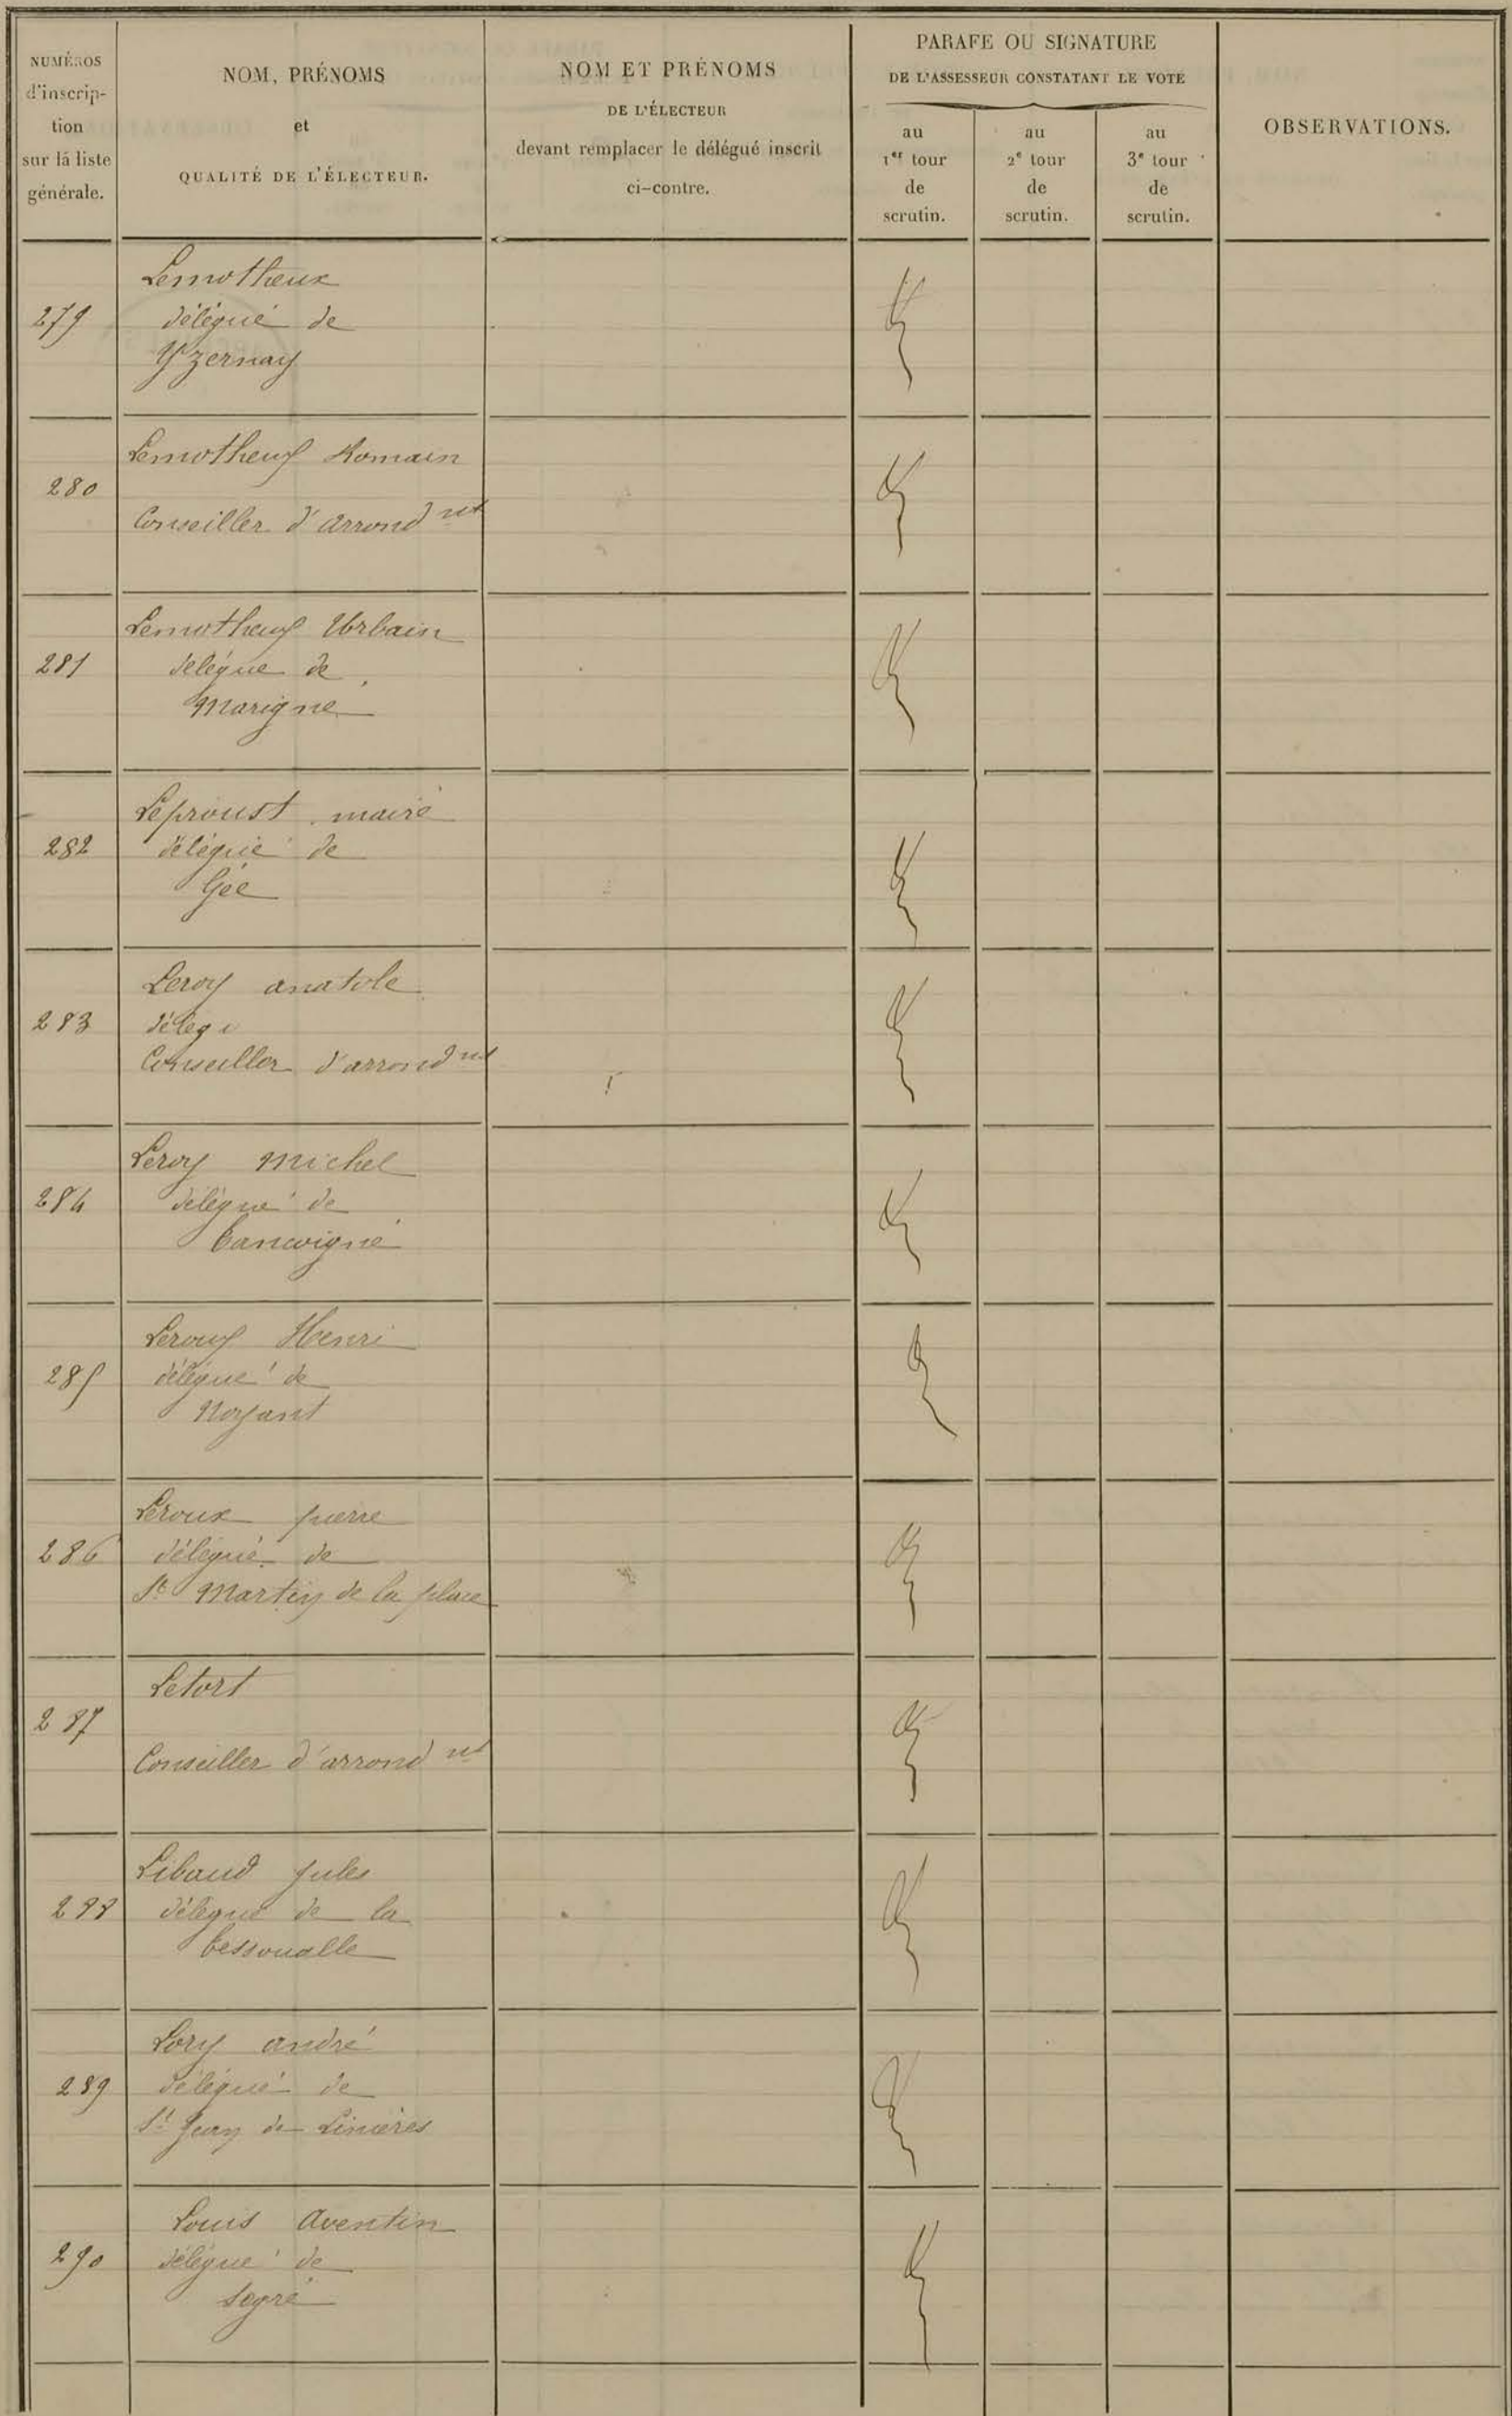 NUMÉROS
d'inscrip-
tion
sur la liste
générale.
NOM, PRÉNOMS
et
QUALITÉ DE L'ÉLECTEUR.
NOM ET PRÉNOMS
DE L'ÉLECTEUR
devant remplacer le délégué inscrit
ci-contre.
PARAFE OU SIGNATURE
DE L'ASSESSEUR CONSTATANT LE VOTE
au
1er tour
de
scrutin.
au
2e tour
de
scrutin.
au
3e tour
de
scrutin.
OBSERVATIONS.
279
Lemotheux
délégué de
Yzernay
280
Lemotheux Romain
Conseiller d'arrondnt
281
Lemotheux Urbain
délégué de
Marigné
282
Leproust maire
délégué de
Gée
283
Leroy anatole
délég
Conseiller d'arrondnt
284
Leroy Michel
délégué de
Tancoigné
285
Leroux Henri
délégué de
Noyant
286
Leroux pierre
délégué de
St Martin de la place
287
Letort
Conseiller d'arrondnt
288
Libaud Jules
délégué de la
Tessoualle
289
Lory andré
délégué de
St Jean de Linières
290
Louis Aventin
délégué de
Segré